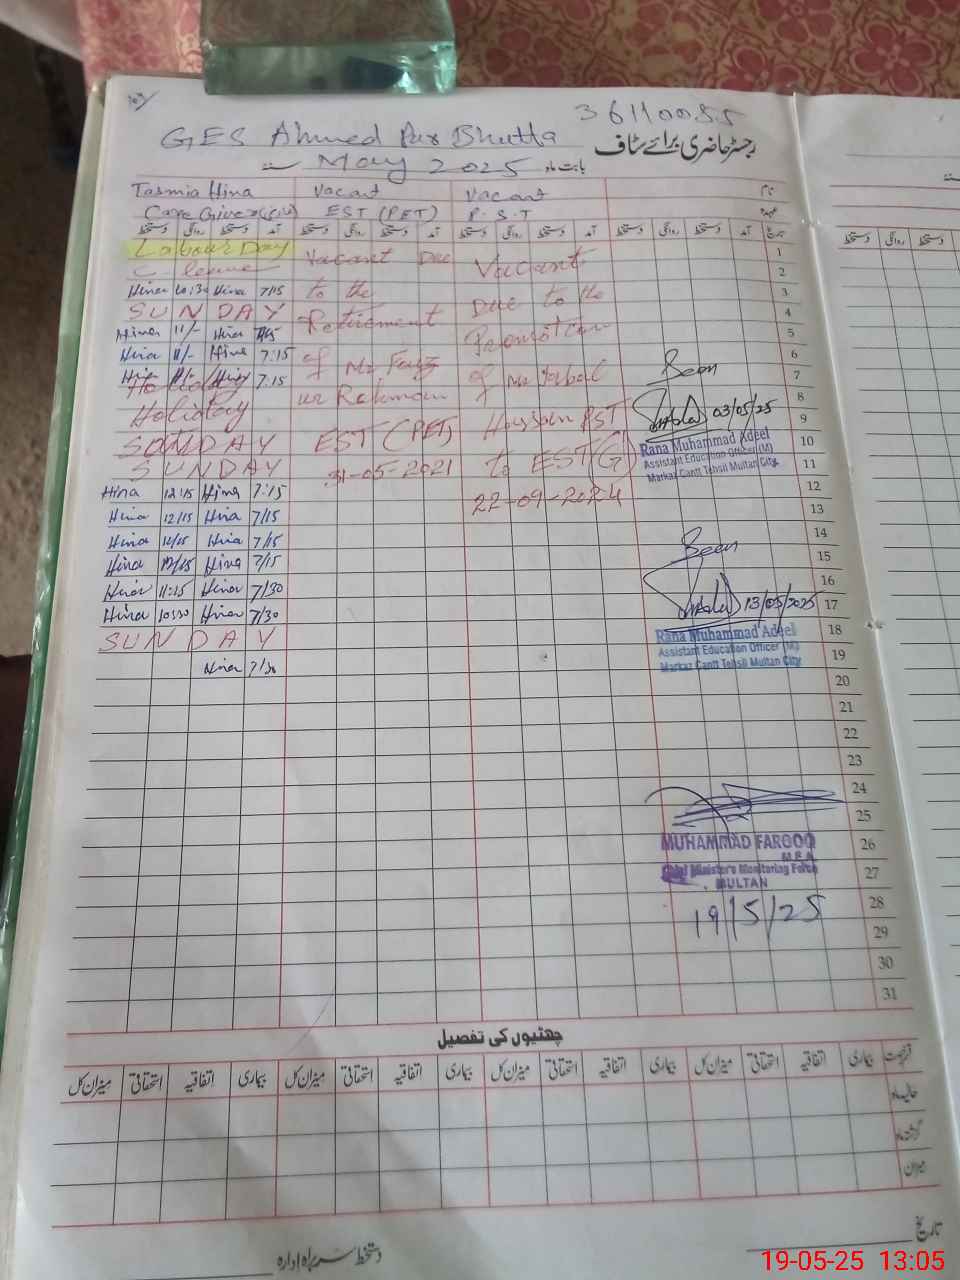 36110055
GES Ahmed Pur Bhutta
رجسٹر حاضری برائے سٹاف
بابت ماہ May 2025
نام
Tasmia Hina Vacant Vacant
عہدہ
Care Giver EST (PET) P.S.T
دستخط روانگی دستخط آمد دستخط روانگی دستخط آمد دستخط روانگی دستخط آمد دستخط روانگی دستخط آمد تاریخ
Labour Day 1
C-leave Vacant Due Vacant 2
Hina 10:30 Hina 7/15 to the Due to the 3
SUNDAY Retirement 4
Hina 11/- Hina 7/15 Promotion 5
Hina 11/- Hina 7:15 of Mr Faiz of Mr Iqbal 6
Holiday Hina 7:15 ur Rahman 7
Holiday Hussain PST 8
SUNDAY EST (PET) to EST (G)
SUNDAY 31-05-2021 22-09-2024
Seen
03/05/25
9
Rana Muhammad Adeel 10
Assistant Education Officer (M)
Markaz Cantt Tehsil Multan City 11
Hina 12:15 Hina 7:15 12
Hina 12/15 Hina 7/15 13
Hina 12/15 Hina 7/15 14
Hina 12/15 Hina 7/15 Seen 15
Hina 11:15 Hina 7/30 16
Hina 10:30 Hina 7/30 13/05/2025 17
SUNDAY 18
Rana Muhammad Adeel
Assistant Education Officer (M)
Hina 7/30 19
Markaz Cantt Tehsil Multan City
20
21
22
23
24
25
MUHAMMAD FAROOQ 26
M.E.A
Chief Minister's Monitoring Force 27
MULTAN
19/5/25 28
29
30
31
چھٹیوں کی تفصیل
میزان کل استحقاقی اتفاقیہ بیماری میزان کل استحقاقی اتفاقیہ بیماری میزان کل استحقاقی اتفاقیہ بیماری میزان کل استحقاقی اتفاقیہ بیماری
حالیہ ماہ
گزشتہ ماہ
میزان
تاریخ
دستخط سربراہ ادارہ
19-05-25 13:05